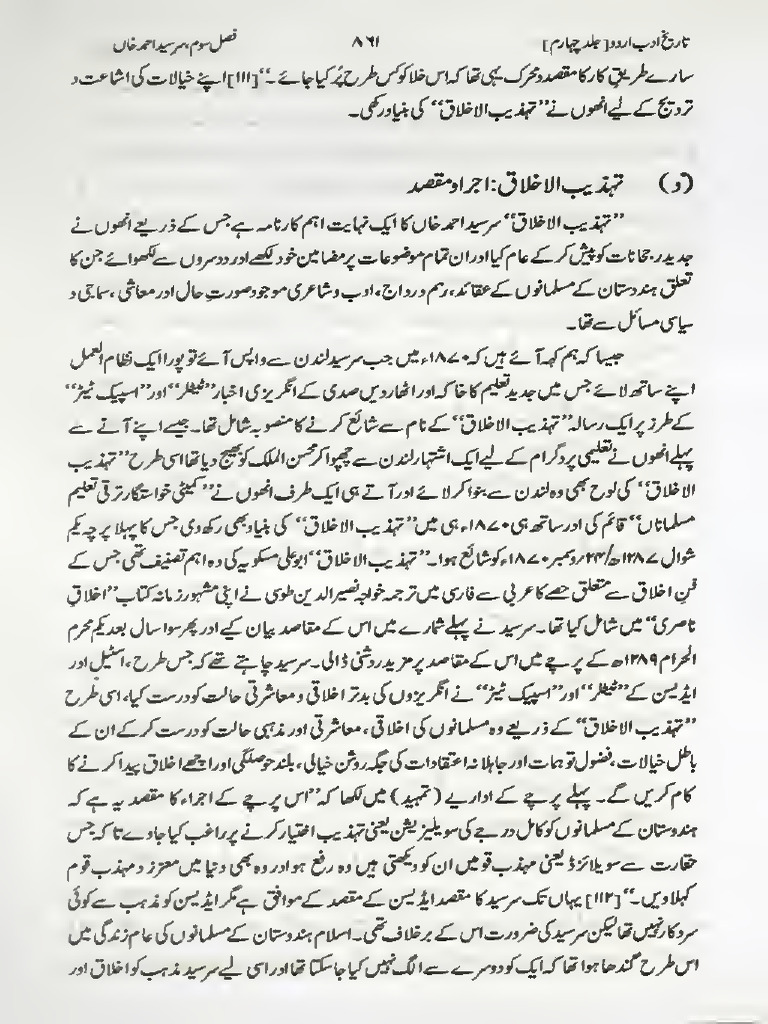 تاریخ ادب اردو [جلد چہارم] ۸۶۱ فصل سوم، سرسید احمد خاں
سارے طریقِ کار کا مقصد و محرک یہی تھا کہ اس خلا کو کس طرح پُر کیا جائے۔‘‘[۱۱۱] اپنے خیالات کی اشاعت و
ترویج کے لیے انھوں نے ’’تہذیب الاخلاق‘‘ کی بنیاد رکھی۔
(و) تہذیب الاخلاق: اجرا و مقصد
’’تہذیب الاخلاق‘‘ سرسید احمد خاں کا ایک نہایت اہم کارنامہ ہے جس کے ذریعے انھوں نے
جدید رجحانات کو پیش کر کے عام کیا اور ان تمام موضوعات پر مضامین خود لکھے اور دوسروں سے لکھوائے جن کا
تعلق ہندوستان کے مسلمانوں کے عقائد، رسم و رواج، ادب و شاعری موجود صورتِ حال اور معاشی، سماجی و
سیاسی مسائل سے تھا۔
جیسا کہ ہم کہہ آئے ہیں کہ ۱۸۷۰ء میں جب سرسید لندن سے واپس آئے تو پورا ایک نظام العمل
اپنے ساتھ لائے جس میں جدید تعلیم کا خاکہ اور اٹھارویں صدی کے انگریزی اخبار ’’ٹیٹلر‘‘ اور ’’اسپیک ٹیٹر‘‘
کے طرز پر ایک رسالہ ’’تہذیب الاخلاق‘‘ کے نام سے شائع کرنے کا منصوبہ شامل تھا۔ جیسے اپنے آنے سے
پہلے انھوں نے تعلیمی پروگرام کے لیے ایک اشتہار لندن سے چھپوا کر محسن الملک کو بھیج دیا تھا اسی طرح ’’تہذیب
الاخلاق‘‘ کی لوح بھی وہ لندن سے بنوا کر لائے اور آتے ہی ایک طرف انھوں نے ’’کمیٹی خواستگار ترقی تعلیم
مسلمانان‘‘ قائم کی اور ساتھ ہی ۱۸۷۰ء ہی میں ’’تہذیب الاخلاق‘‘ کی بنیاد بھی رکھ دی جس کا پہلا پرچہ یکم
شوال ۱۲۸۷ھ/۲۴؍دسمبر ۱۸۷۰ء کو شائع ہوا۔ ’’تہذیب الاخلاق‘‘ ابوعلی مسکویہ کی وہ اہم تصنیف تھی جس کے
فنِ اخلاق سے متعلق حصے کا عربی سے فارسی میں ترجمہ خواجہ نصیر الدین طوسی نے اپنی مشہور زمانہ کتاب ’’اخلاقِ
ناصری‘‘ میں شامل کیا تھا۔ سرسید نے پہلے شمارے میں اس کے مقاصد بیان کیے اور پھر سوا سال بعد یکم محرم
الحرام ۱۲۸۹ھ کے پرچے میں اس کے مقاصد پر مزید روشنی ڈالی۔ سرسید چاہتے تھے کہ جس طرح، اسٹیل اور
ایڈیسن کے ’’ٹیٹلر‘‘ اور ’’اسپیک ٹیٹر‘‘ نے انگریزوں کی بدتر اخلاقی و معاشرتی حالت کو درست کیا، اسی طرح
’’تہذیب الاخلاق‘‘ کے ذریعے وہ مسلمانوں کی اخلاقی، معاشرتی اور مذہبی حالت کو درست کر کے ان کے
باطل خیالات، فضول توہمات اور جاہلانہ اعتقادات کی جگہ روشن خیالی، بلند حوصلگی اور اچھے اخلاق پیدا کرنے کا
کام کریں گے۔ پہلے پرچے کے اداریے (تمہید) میں لکھا کہ ’’اس پرچے کے اجراء کا مقصد یہ ہے کہ
ہندوستان کے مسلمانوں کو کامل درجے کی سویلیزیشن یعنی تہذیب اختیار کرنے پر راغب کیا جاوے تا کہ جس
حقارت سے سویلائزڈ یعنی مہذب قومیں ان کو دیکھتی ہیں وہ رفع ہو اور وہ بھی دنیا میں معزز و مہذب قوم
کہلاویں۔‘‘ [۱۱۲] یہاں تک سرسید کا مقصد ایڈیسن کے مقصد کے موافق ہے مگر ایڈیسن کو مذہب سے کوئی
سروکار نہیں تھا لیکن سرسید کی ضرورت اس کے برخلاف تھی۔ اسلام ہندوستان کے مسلمانوں کی عام زندگی میں
اس طرح گندھا ہوا تھا کہ ایک کو دوسرے سے الگ نہیں کیا جا سکتا تھا اور اسی لیے سرسید مذہب کو اخلاق اور